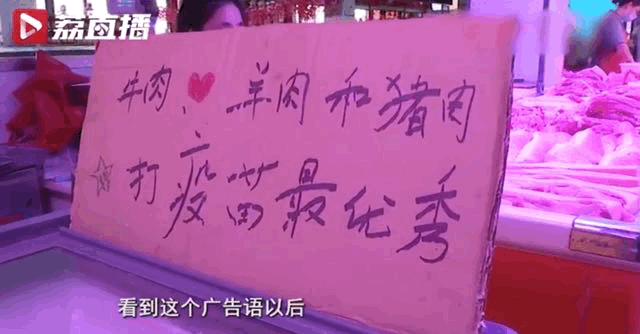 荔直播
牛肉、❤羊肉和猪肉
☆打疫苗最优秀
看到这个广告语以后